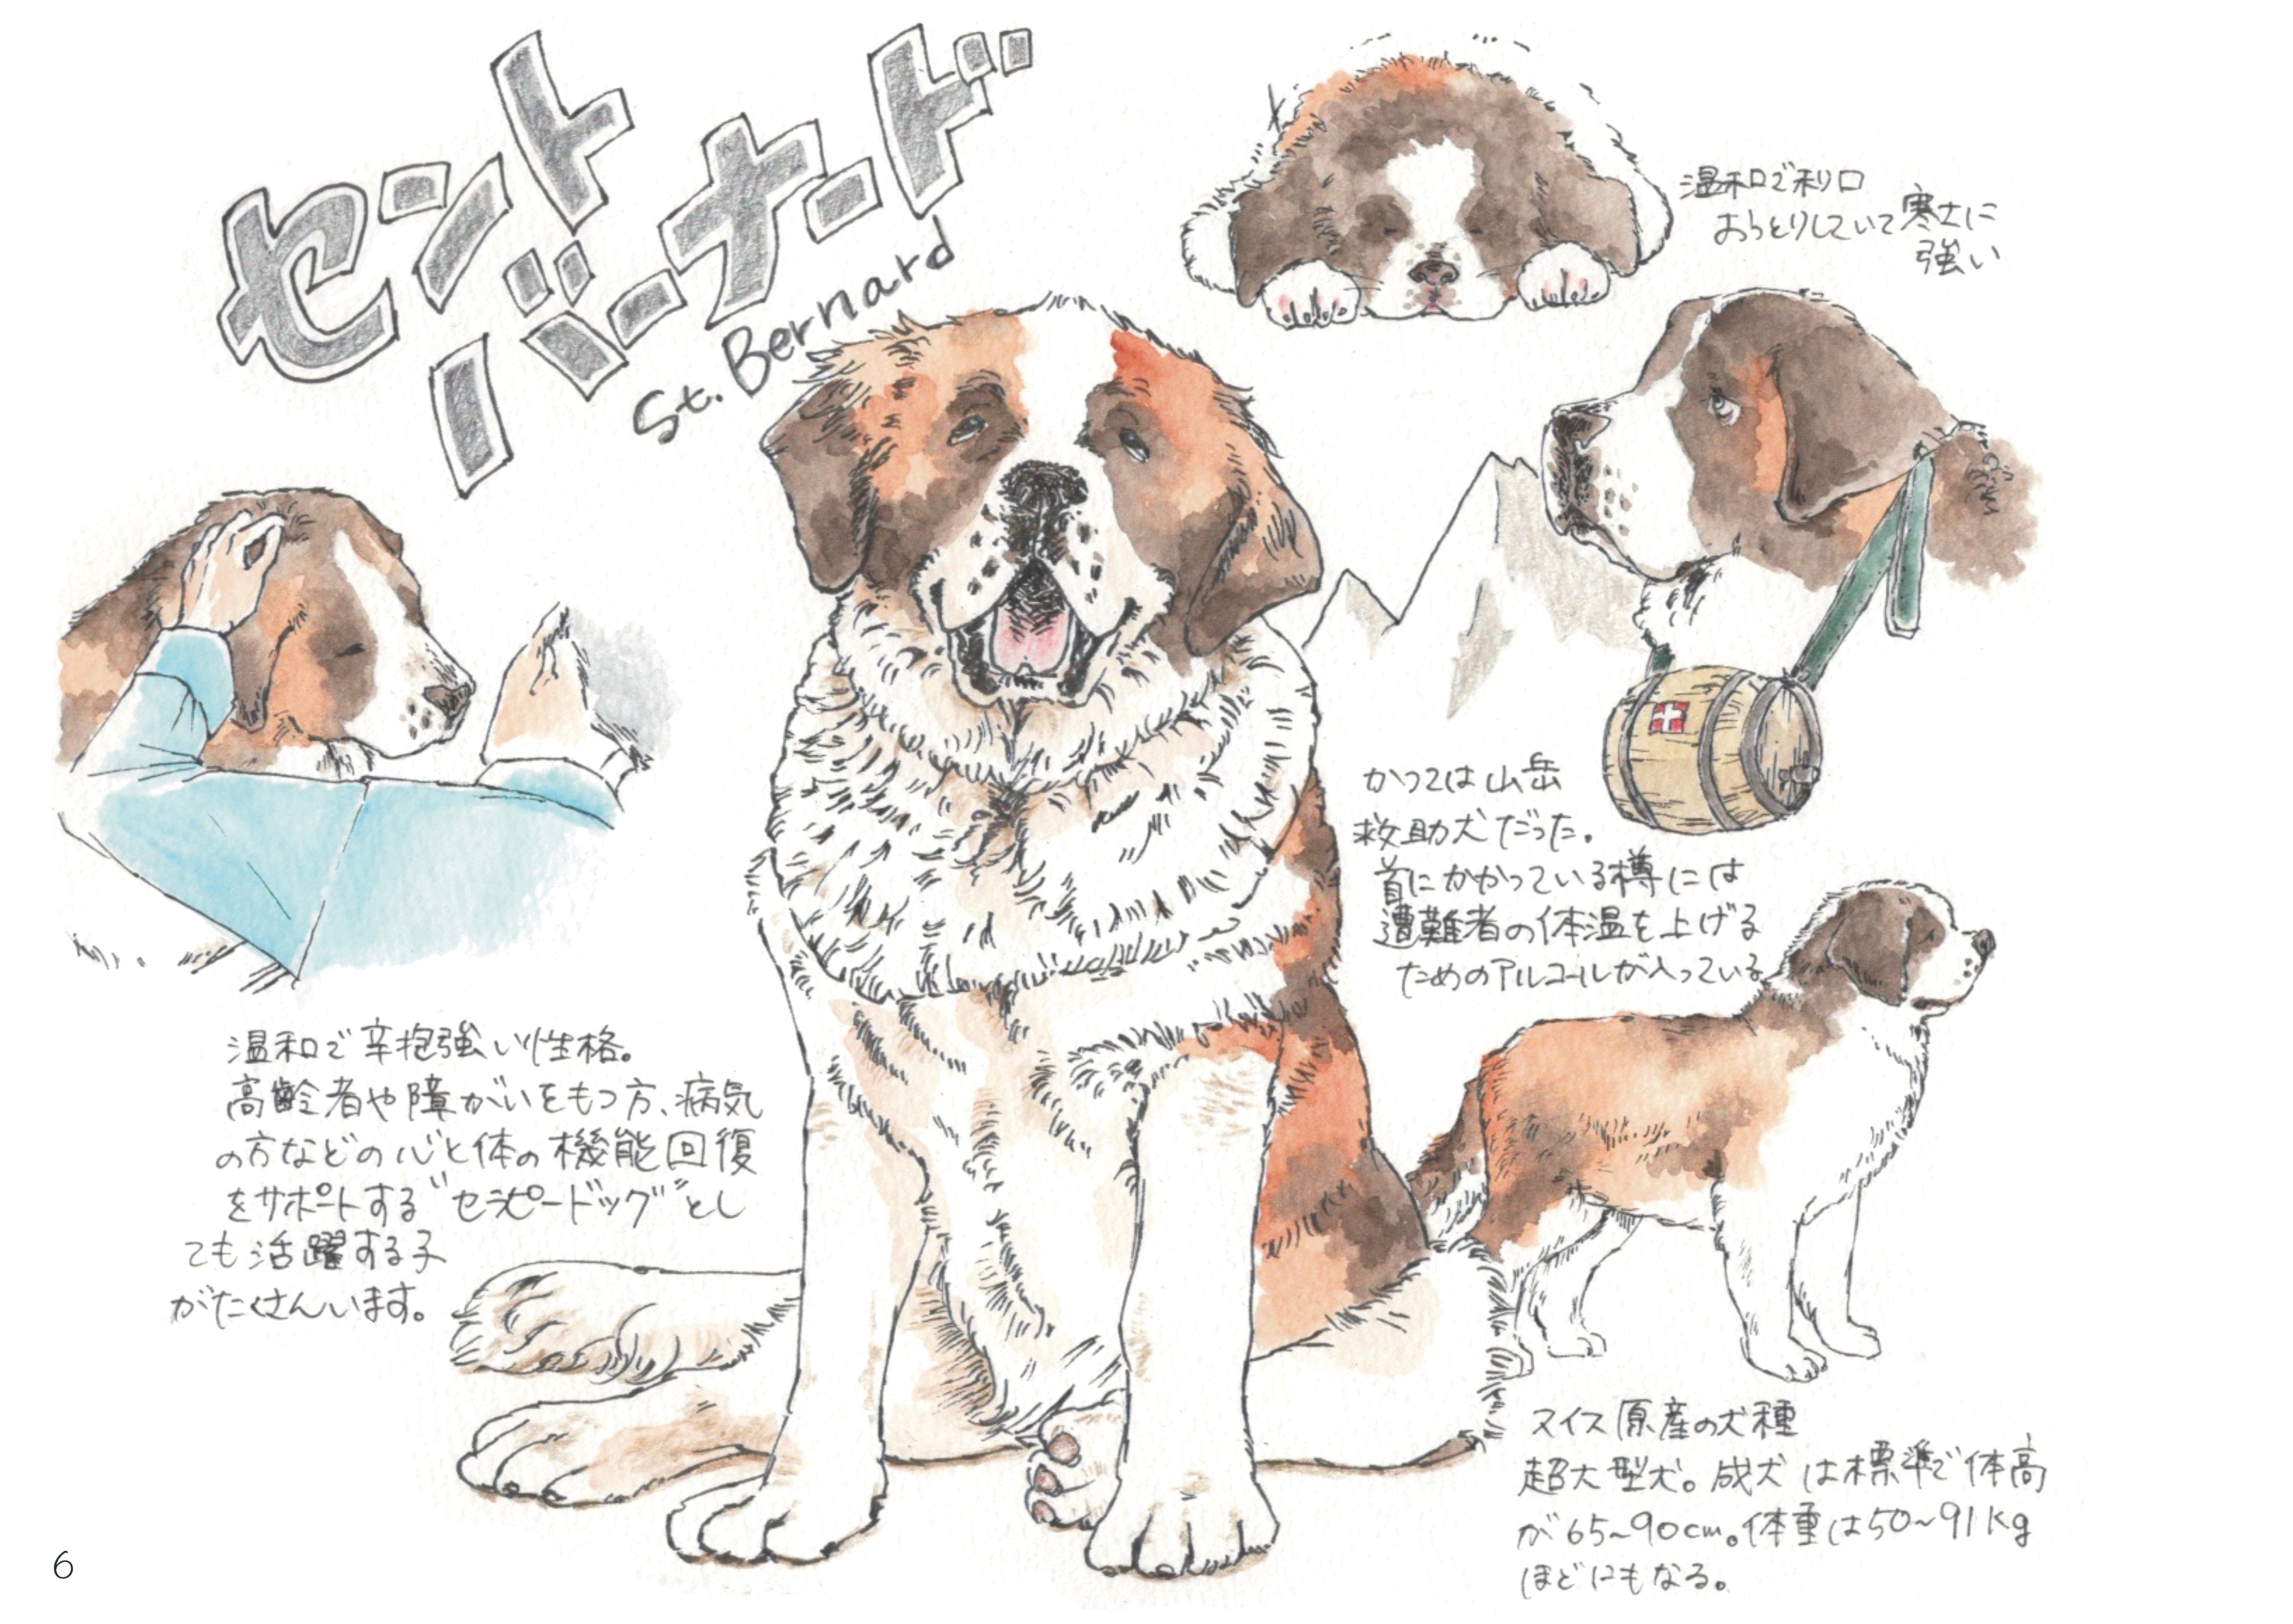 セント
バーナード
St. Bernard
温和で利口
おっとりしていて寒さに
強い
かつては山岳
救助犬だった。
首にかかっている樽には
遭難者の体温を上げる
ためのアルコールが入っている
温和で辛抱強い性格。
高齢者や障がいをもつ方、病気
の方などの心と体の機能回復
をサポートする“セラピードッグ”とし
ても活躍する子
がたくさんいます。
スイス原産の犬種
超大型犬。成犬は標準で体高
が65~90cm。体重は50~91kg
ほどにもなる。
6